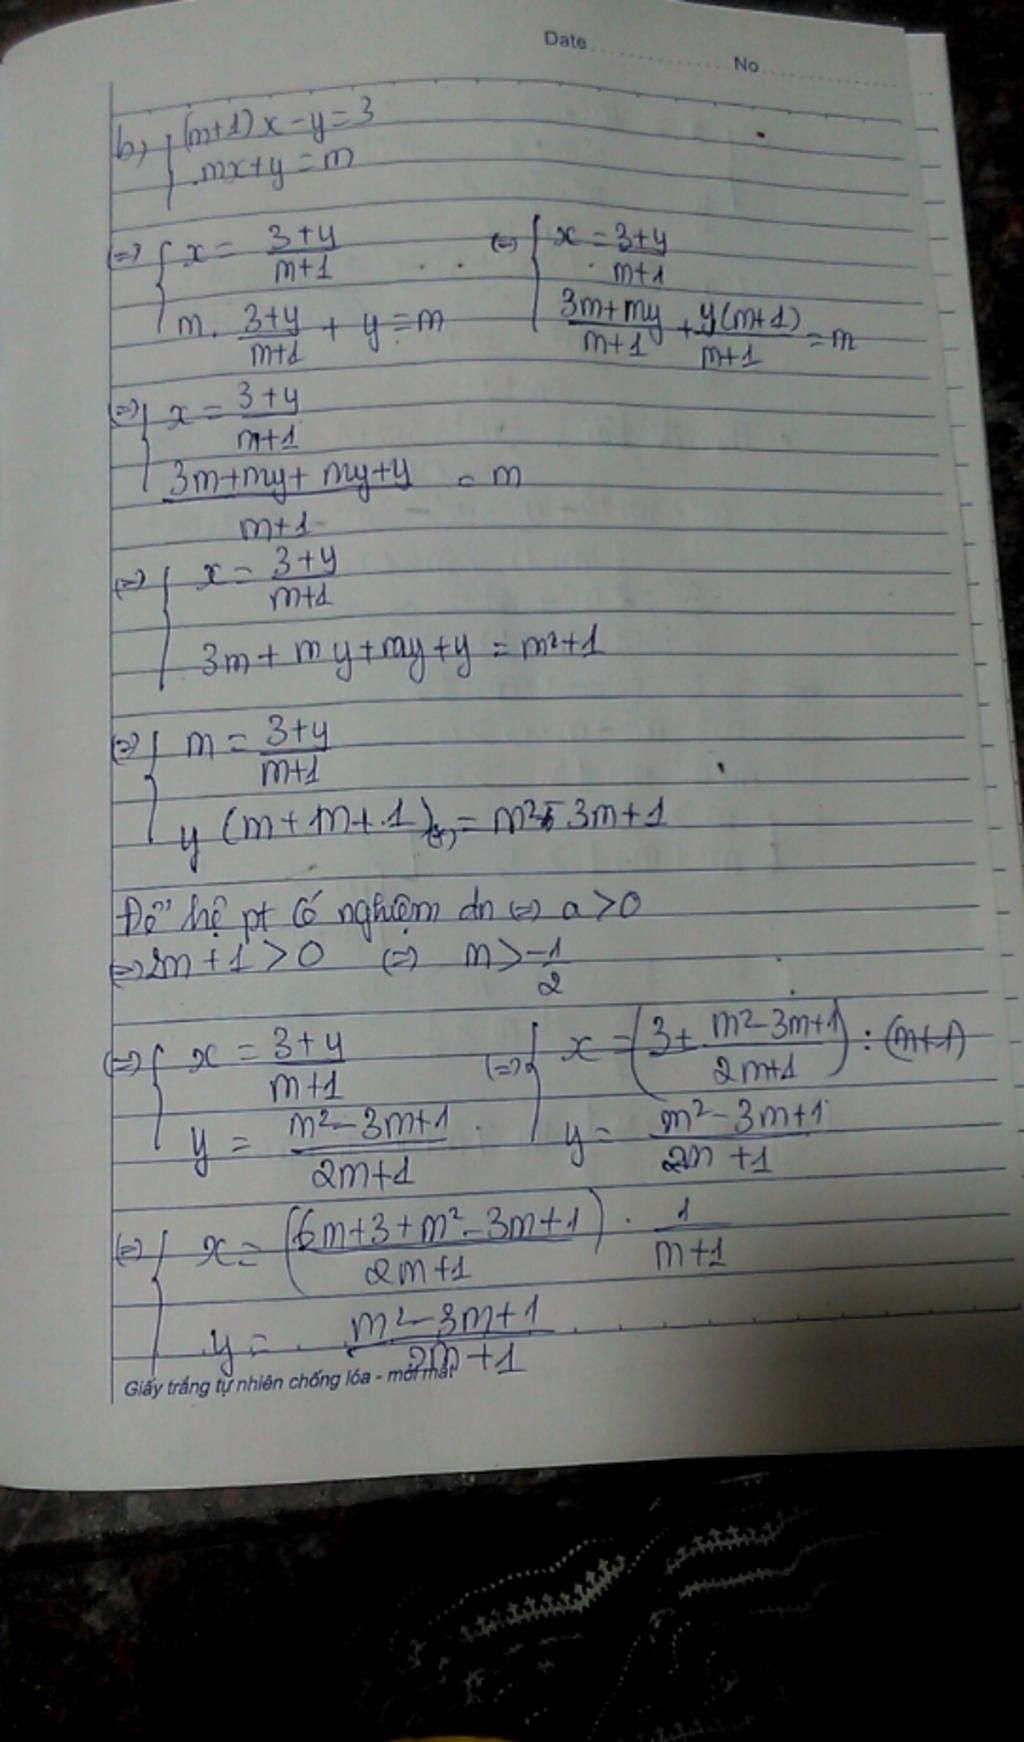 Date
No
b, { (m+1)x - y = 3
mx + y = m
(=) { x = 3+y / m+1 (=) { x = 3+y / m+1
m. 3+y / m+1 + y = m 3m+my / m+1 + y(m+1) / m+1 = m
(=) { x = 3+y / m+1
3m+my+my+y / m+1 = m
(=) { x = 3+y / m+1
3m + my + my + y = m²+1
(=) { m = 3+y / m+1
y (m+m+1) (*) = m² - 3m+1
Để hệ pt có nghiệm dn (=) a > 0
(=) 2m + 1 > 0 (=) m > -1 / 2
(=) { x = 3+y / m+1 (=) { x = (3 + m²-3m+1 / 2m+1) : (m+1)
y = m²-3m+1 / 2m+1 y = m²-3m+1 / 2m+1
(=) { x = (6m+3+m²-3m+1 / 2m+1) . 1 / m+1
y = m²-3m+1 / 2m+1
Giấy trắng tự nhiên chống lóa - mỏi mắt